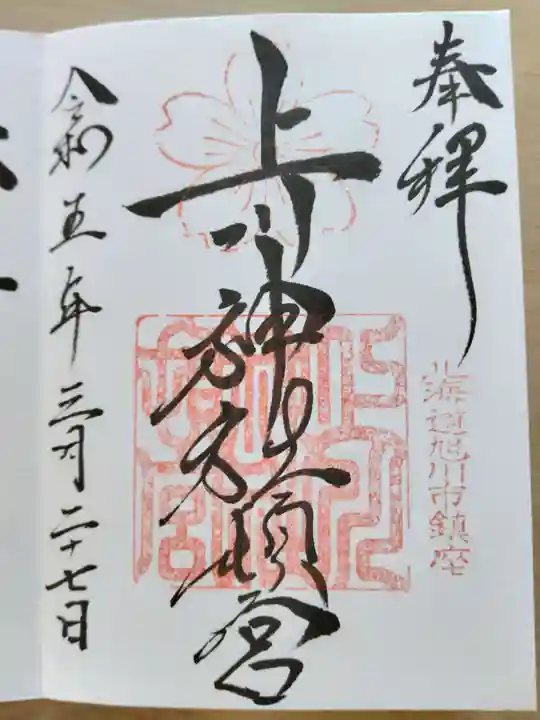 奉拝
北海道旭川市鎮座
上川神社頓宮
令和五年三月二十七日